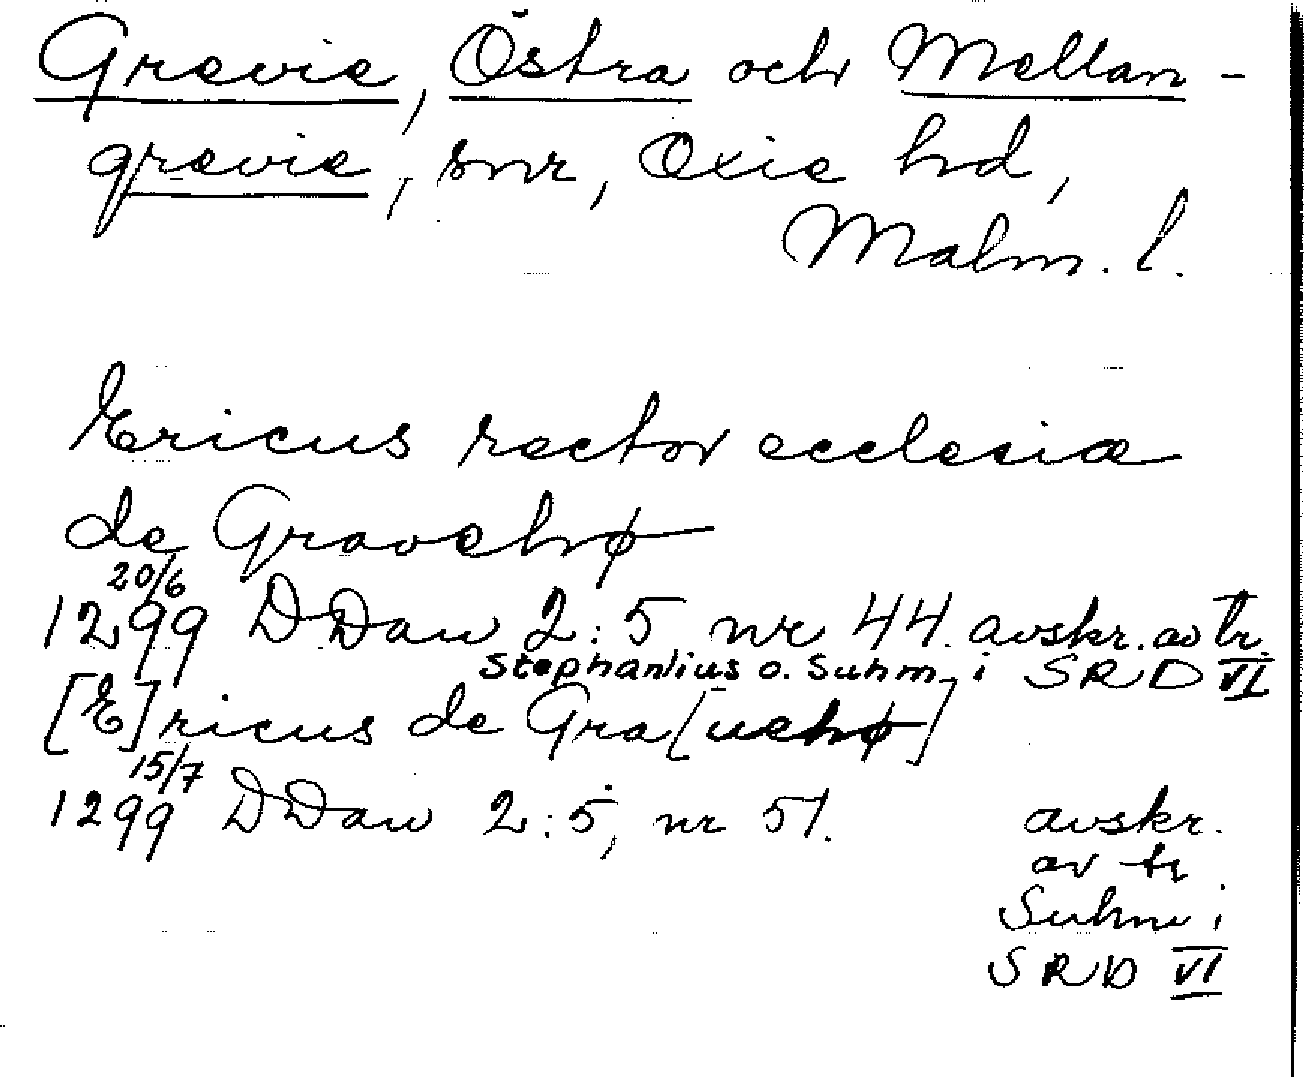 Grevie, Östra och Mellan-
grevie, snr, Oxie hd,
Malm. l.
Ericus rector ecclesiæ
de Gravehø
20/6
1299 DDan 2:5 nr 44. avskr. av tr.
Stephanius o. Suhm, i SRD VI
[E]ricus de Gra[uehø]
15/7
1299 DDan 2:5, nr 51. avskr.
av tr
Suhm i
SRD VI